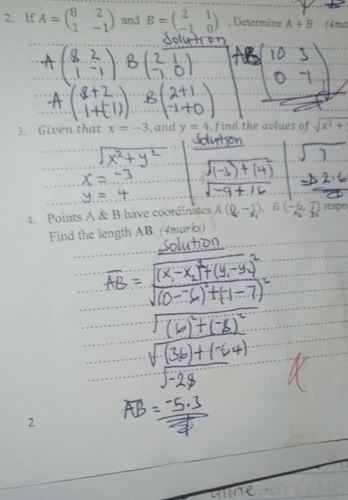 2. If A = (8 2
1 -1) and B = (2 1
-1 0), Determine A + B (4ma
Solution
A (8 2
1 -1) B (2 1
-1 0)
A (8+2
1+(-1)) B (2+1
-1+0)
AB (10 3
0 -1)
3. Given that x = --3, and y = 4, find the avlues of √x² +
Solution
√x²+y²
x = -3
y = 4
√(-3)+(4)²
√-9+16
√7
2.6
4. Points A & B have coordinates A (0, -1), B (-6, 7) respe
Find the length AB. (4marks)
Solution
AB = √(x₁-x₂)²+(y₁-y₂)²
√(0--6)²+(-1-7)²
√(6)²+(-8)²
√(36)+(-64)
√-28
AB = -5.3
2